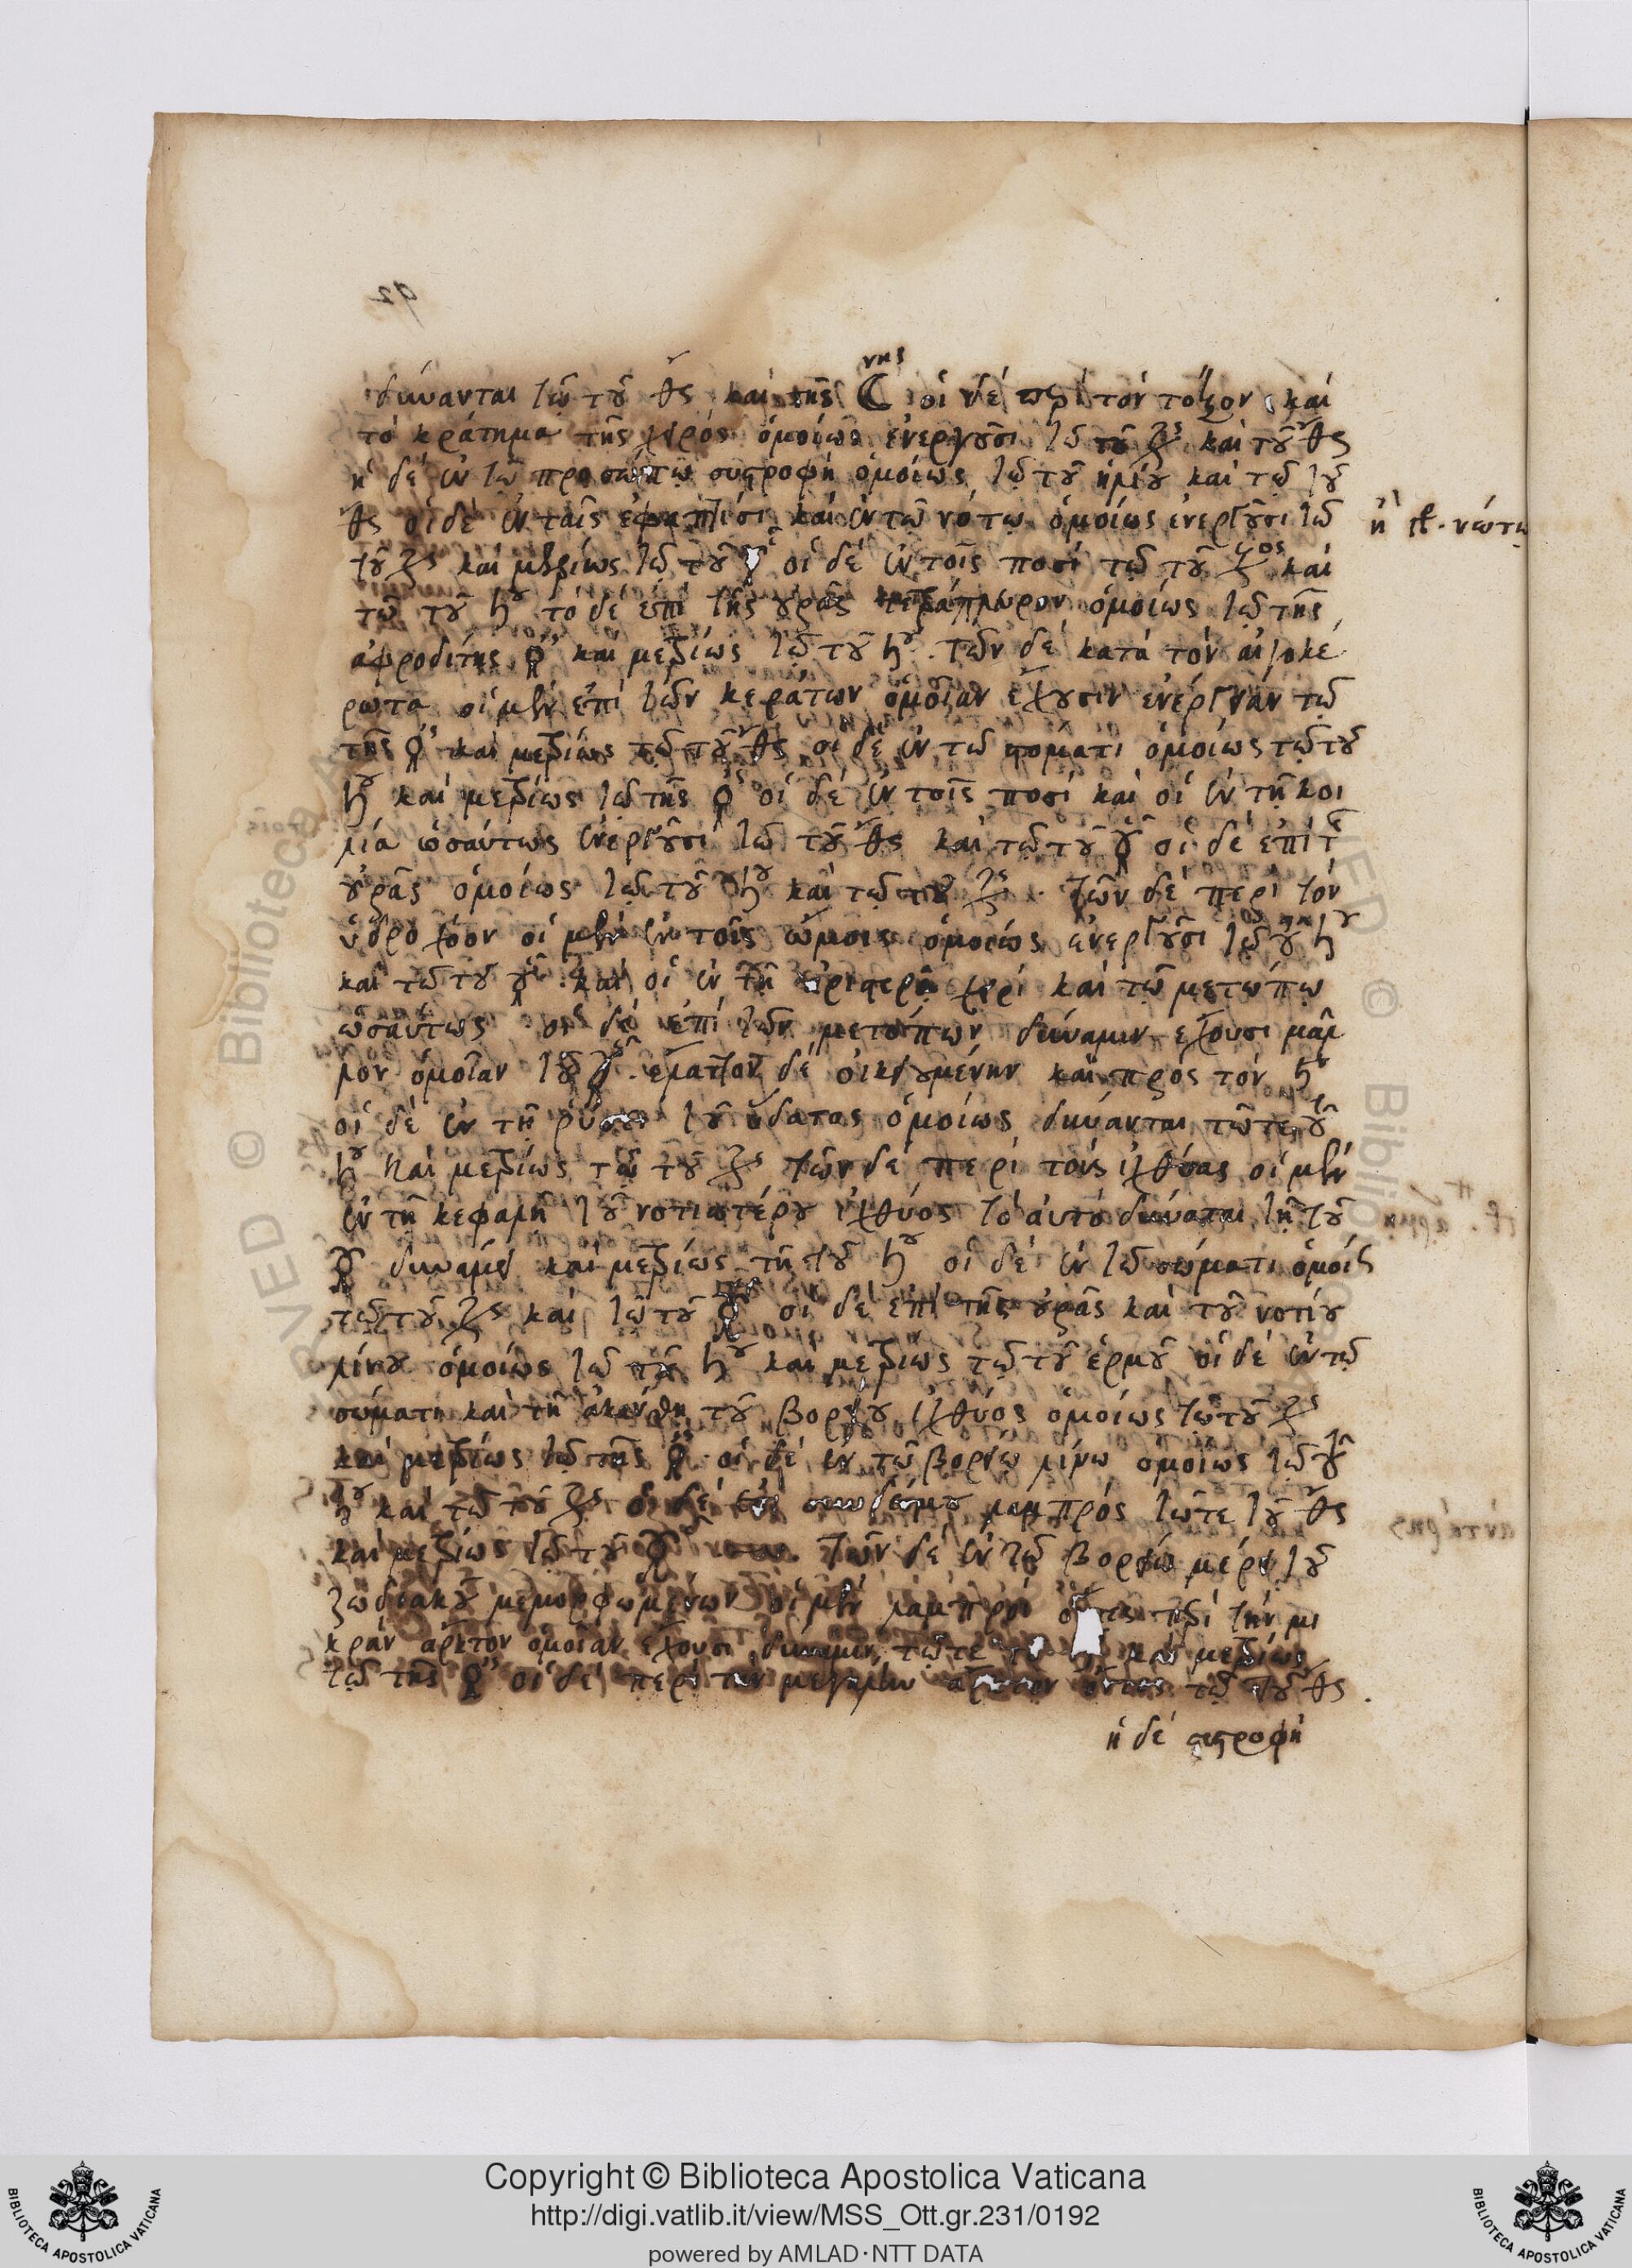 δύνανται τῶ τοῦ ♂ς καὶ τῆς ☾νης οἱ δὲ περὶ τὸν τόξον καὶ
τὸ κράτημα τῆς χειρός ὁμοίως ἐνεργοῦσι τῶ τοῦ ♃ς καὶ τοῦ ♂ς
ἡ δὲ ἐν τῶ προσώπω συστροφὴ ὁμοίως τῶ τοῦ ἡλίου καὶ τῶ τοῦ
♂ς οἱ δὲ ἐν ταῖς ἐφαπτίσι καὶ ἐν τῶ νότω ὁμοίως ἐνεργοῦσι τῶ
ἢ νώτω
τοῦ ♃ς καὶ μετρίως τῶ τοῦ ☿ οἱ δὲ ἐν τοῖς ποσὶ τῶ τοῦ ♃ος καὶ
τῶ τοῦ ♄ου τὸ δὲ ἐπὶ τῆς οὐρᾶς τετράπλευρον ὁμοίως τῶ τῆς
ἀφροδίτης ♀ καὶ μετρίως τῶ τοῦ ♄ου. τῶν δὲ κατὰ τὸν αἰγοκέ
ρωτα οἱ μὲν ἐπὶ τῶν κεράτων ὁμοίαν ἔχουσιν ἐνέργειαν τῶ
τῆς ♀ καὶ μετρίως τῶ τοῦ ♂ς οἱ δὲ ἐν τῶ στόματι ὁμοίως τῶ τοῦ
♄ου καὶ μετρίως τῶ τῆς ♀ οἱ δὲ ἐν τοῖς ποσὶ καὶ οἱ ἐν τῆ κοι
λία ὡσαύτως ἐνεργοῦσι τῶ τοῦ ♂ς καὶ τῶ τοῦ ☿ οἱ δὲ ἐπὶ τ
οὐρᾶς ὁμοίως τῶ τοῦ ♄ου καὶ τῶ τοῦ ♃ς. τῶν δὲ περὶ τὸν
ὑδροχόον οἱ μὲν ἐν τοῖς ὤμοις ὁμοίως ἐνεργοῦσι τῶ τοῦ ♄ου
καὶ τῶ τοῦ ☿ καὶ οἱ ἐν τῆ ἀριστερᾶ χειρὶ καὶ τῶ μετώπω
ὡσαύτως οἱ δὲ ἐπὶ τῶν μετώπων δύναμιν ἔχουσι μᾶλ
λον ὁμοίαν τοῦ ☿ ἔλαττον δὲ καὶ πρὸς τὸν ♄
οἱ δὲ ἐν τῆ ῥύσει τοῦ ὕδατος ὁμοίως δύνανται τῶ τε τοῦ
♄ου καὶ μετρίως τῶ τοῦ ♃ς τῶν δὲ περὶ τοὺς ἰχθύας οἱ μὲν
ἐν τῆ κεφαλῆ τοῦ νοτιωτέρου ἰχθύος τὸ αὐτὸ δύνανται τῆ τοῦ
☿ δυνάμει καὶ μετρίως τῆ τοῦ ♄ου οἱ δὲ ἐν τῶ σώματι ὁμοίως
τῶ τοῦ ♃ς καὶ τῶ τοῦ ☿ οἱ δὲ ἐπὶ τῆς οὐρᾶς καὶ τοῦ νοτίου
λίνου ὁμοίως τῶ τοῦ ♄ου καὶ μετρίως τῶ τοῦ ἑρμοῦ οἱ δὲ ἐν τῶ
σώματι καὶ τῆ ἀκάνθη τοῦ βορείου ἰχθύος ὁμοίως τῶ τοῦ ♃ς
καὶ μετρίως τῶ τῆς ♀ οἱ δὲ ἐν τῶ βορείω λίνω ὁμοίως τῶ τοῦ
♄ου καὶ τῶ τοῦ ♃ς ὁ δὲ ἐπὶ συνδέσμου λαμπρὸς τῶ τε τοῦ ♂ς
καὶ μετρίως τῶ τοῦ ☿ τῶν δὲ ἐν τῶ βορείω μέρει τοῦ
ζωδιακοῦ μεμορφωμένων οἱ μὲν λαμπροὶ περὶ τὴν μι
κρὰν ἄρκτον ὁμοίαν ἔχουσι δύναμιν τῶ τε καὶ μετρίως
τῶ τῆς ♀ οἱ δὲ περὶ τὴν μεγάλην ἄρκτον ὄντες τῶ τοῦ ♂ς.
ἡ δὲ συστροφὴ
Copyright © Biblioteca Apostolica Vaticana
http://digi.vatlib.it/view/MSS_Ott.gr.231/0192
powered by AMLAD·NTT DATA